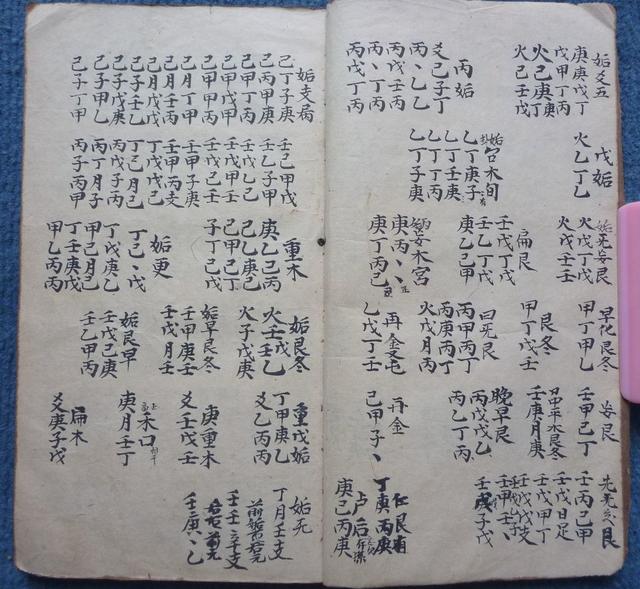 姤爻五
火己庚丁
火己壬戊
丙姤
爻己子丁
丙、乙乙
丙戊壬丙
丙、丁丙
丙戊丁丙
戊姤
火乙丁乙
姤宮木旬
乙丁庚子
乙丁壬庚
乙丁丁丙
乙丁子庚
姤死安艮
火戊丁戊
火戊壬壬
扁艮
壬戊丁戊
壬乙丁戊
庚乙己甲
木宮
庚丙、、
庚丁丙己
早化艮冬
甲丁甲乙
艮冬
甲丁戊壬
曰旡艮
丙甲丙丁
丙庚丙丁
火戊月丙
再金支屯
乙戊丁壬
安艮
壬甲己丁
日甲平木艮冬
壬庚月庚
晚早艮
丙戊戊乙
丙乙丁丙
再金
己甲子、
壬丙己甲
壬戊日足
壬戊甲丁
丁庚丙庚
庚己丙庚
姤支局
己丁子庚
己丙甲庚
己甲丁丙
己甲戊甲
己甲甲丙
己月壬丙
己月戊戊
己壬壬壬
己子戊庚
己子甲乙
己子丁甲
壬己甲戊
壬乙子甲
壬戊乙己
壬戊甲壬
壬戊己壬
壬甲丙支
丁戊戊己
丁己月己
丙戊子丙
丙丁月子
丙子丙甲
重木
庚乙己丙
己乙庚己
己甲己丁
子丁己戊
姤更
丁己、戊
丁戊庚乙
甲己月己
丁壬庚戊
甲乙丙丙
姤艮冬
火壬戊乙
火子戊庚
姤早艮冬
壬甲庚壬
壬戊月壬
姤艮早
壬戊己庚
壬乙甲丙
重戊姤
丁甲庚乙
爻乙丙丙
庚重木
爻壬戊壬
禾口
庚月壬丁
扁木
爻庚子戊
姤死
丁月壬支